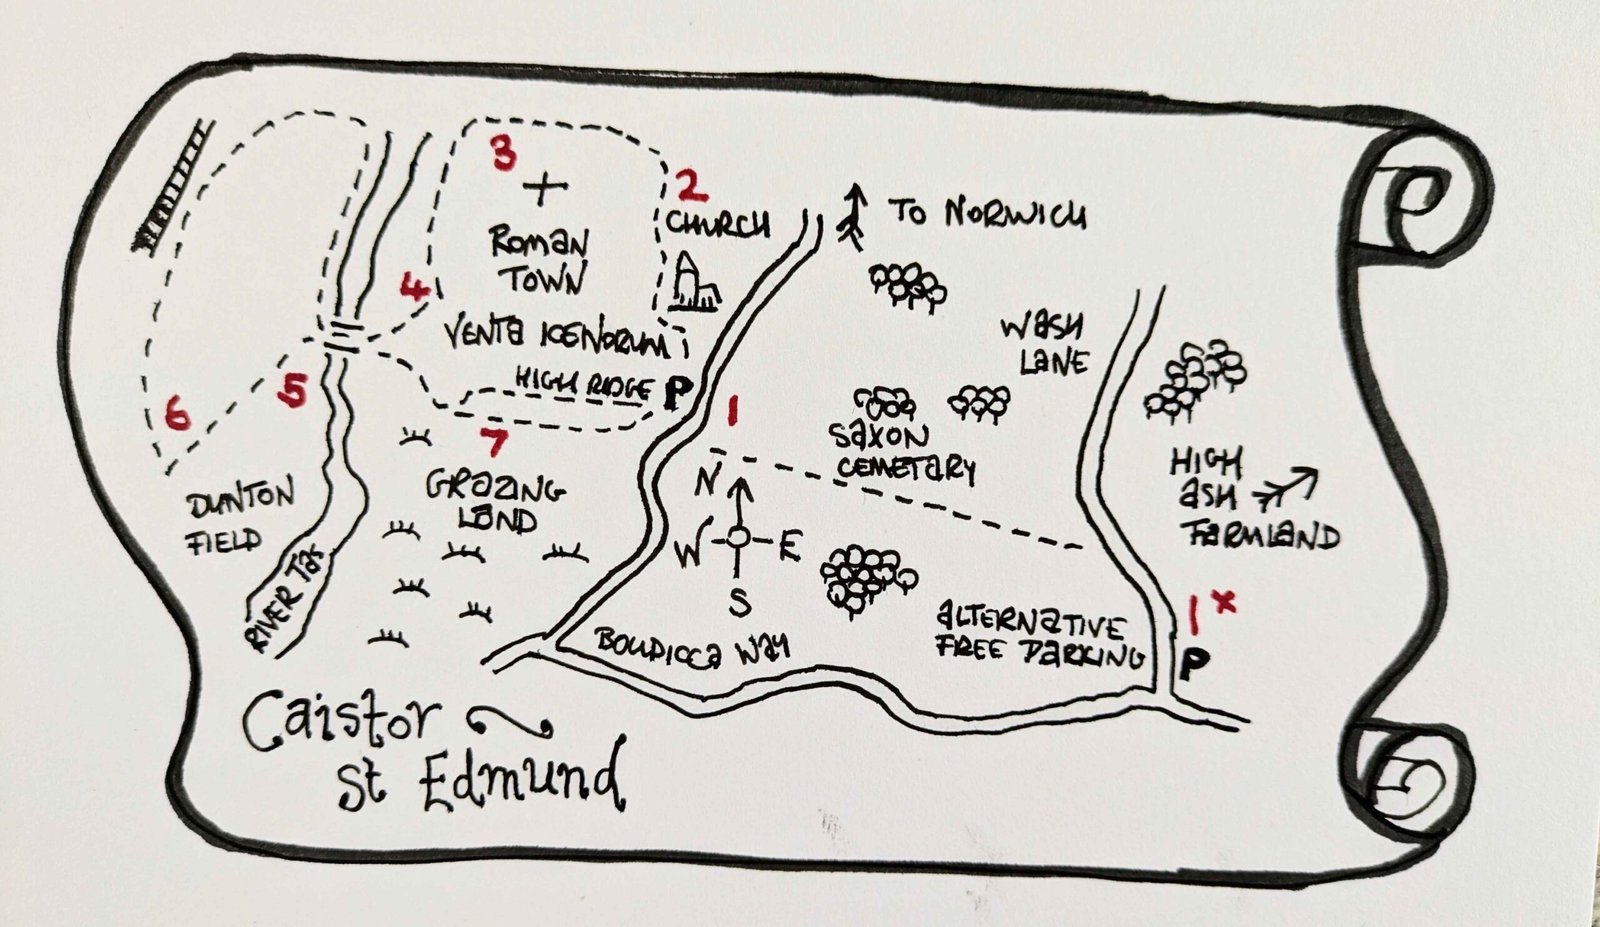 3
2
CHURCH
TO NORWICH
ROMAN
TOWN
4
VENTA ICENORUM
WASH
LANE
HIGH RIDGE
P
5
6
1
7
SAXON
CEMETARY
GRAZING
LAND
N
W
E
S
DUNTON
FIELD
HIGH
ASH
FARMLAND
RIVER TAS
BOUDICCA WAY
ALTERNATIVE
FREE PARKING
1 x
P
Caistor
St Edmund